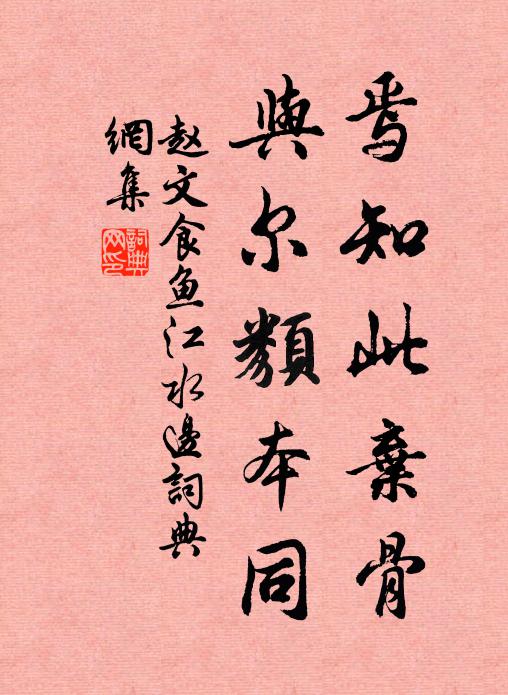 焉知此棄骨
與尔類本同
赵文食鱼江水邊詞典
網集
詞典
网印